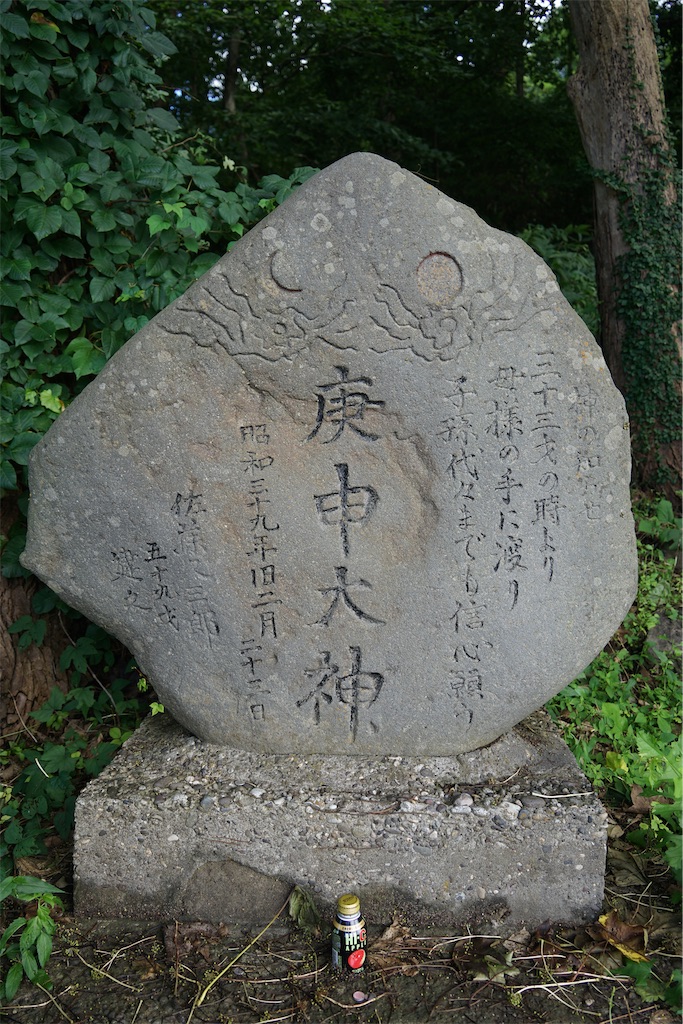 神の
三十三才の時より
母様の手に渡り
子孫代々までも信心願う
庚申大神
昭和三十九年旧二月二十二日
佐藤之三郎
五十九才
建之
HI-
APPLE